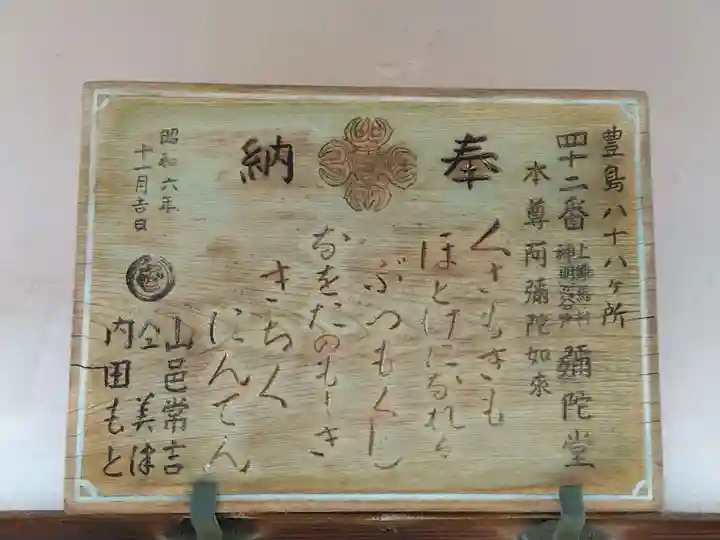 奉納
豊島八十八ヶ所
四十二番 上練馬村 彌陀堂
本尊阿彌陀如來
くさもきも
ほとけになれる
ぶつもくし
なをたのもしき
きちく
にんてん
昭和六年
十一月吉日
山邑常吉
仝 美津
内田もと